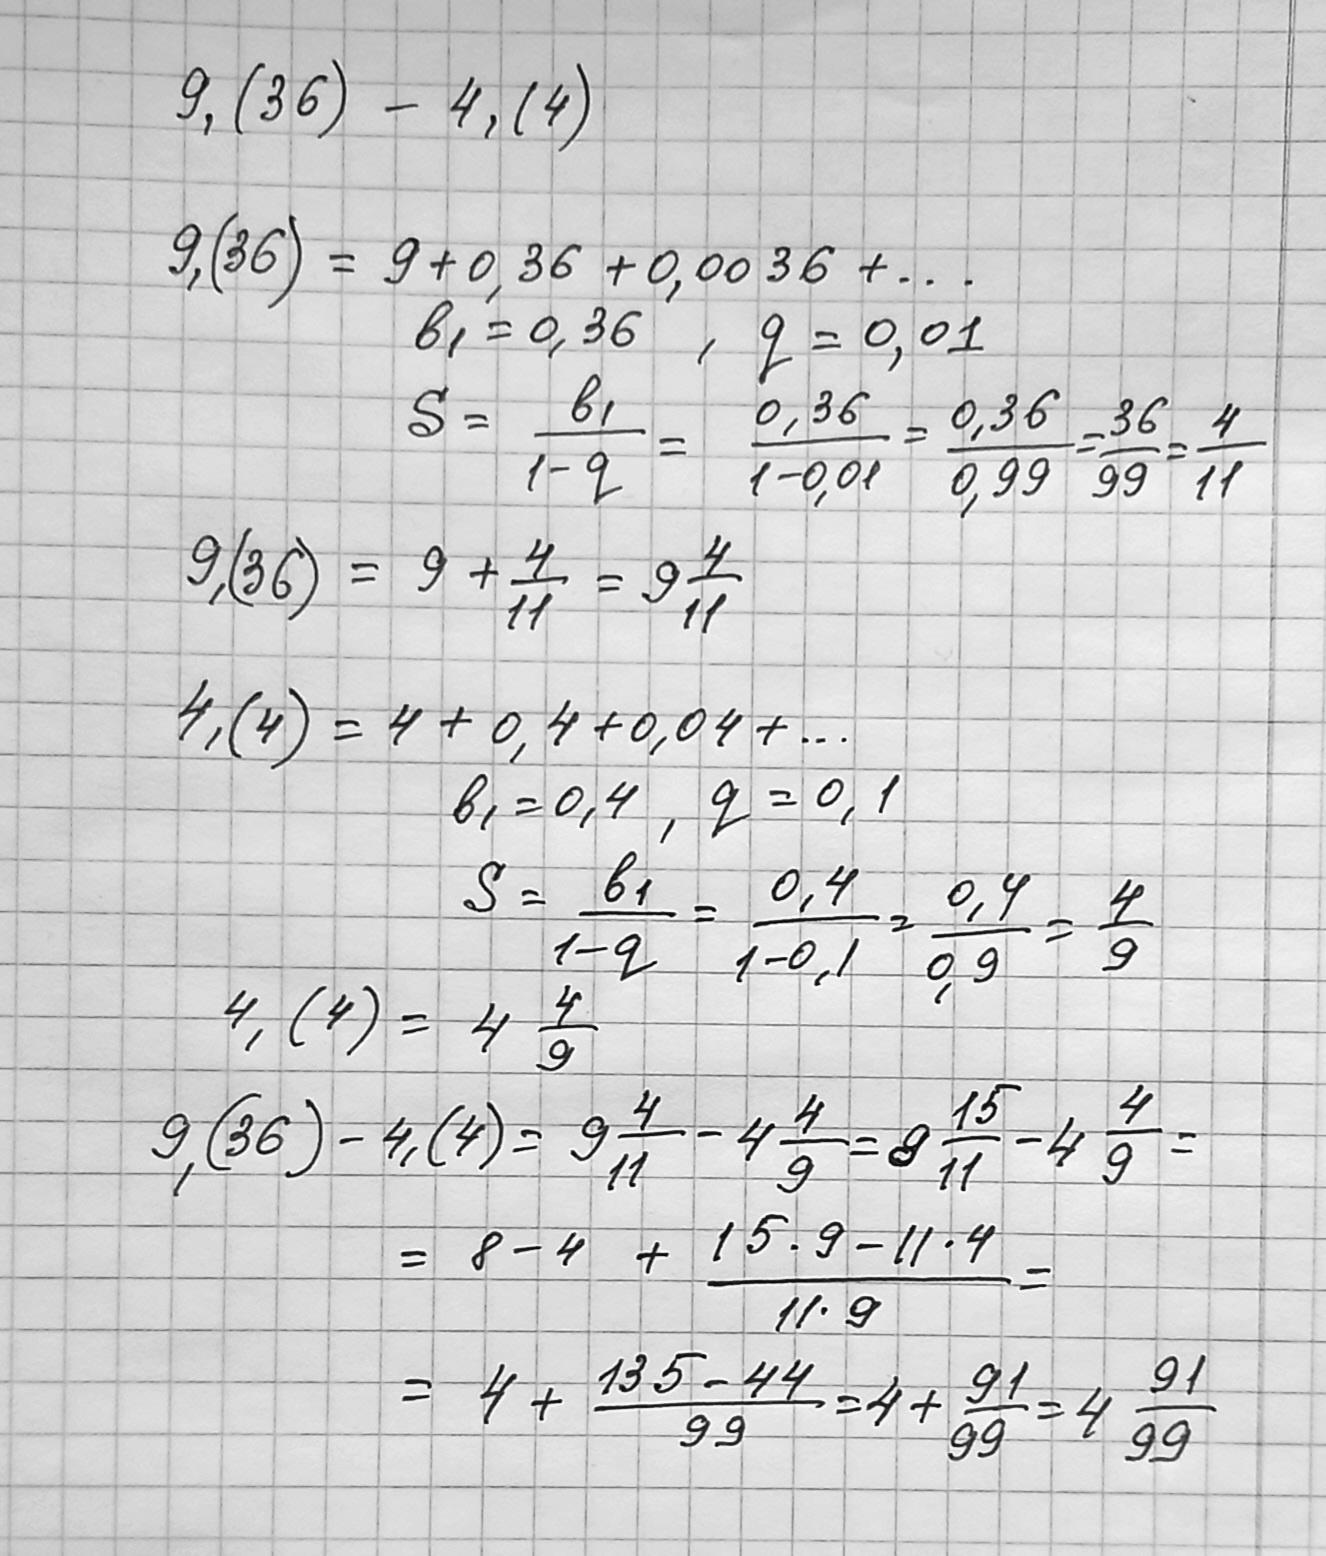 9,(36) - 4,(4)
9,(36) = 9 + 0,36 + 0,0036 + ...
b₁ = 0,36 , q = 0,01
S = b₁/(1-q) = 0,36/(1-0,01) = 0,36/0,99 = 36/99 = 4/11
9,(36) = 9 + 4/11 = 9 4/11
4,(4) = 4 + 0,4 + 0,04 + ...
b₁ = 0,4 , q = 0,1
S = b₁/(1-q) = 0,4/(1-0,1) = 0,4/0,9 = 4/9
4,(4) = 4 4/9
9,(36) - 4,(4) = 9 4/11 - 4 4/9 = 8 15/11 - 4 4/9 =
= 8 - 4 + (15·9 - 11·4)/(11·9) =
= 4 + (135 - 44)/99 = 4 + 91/99 = 4 91/99